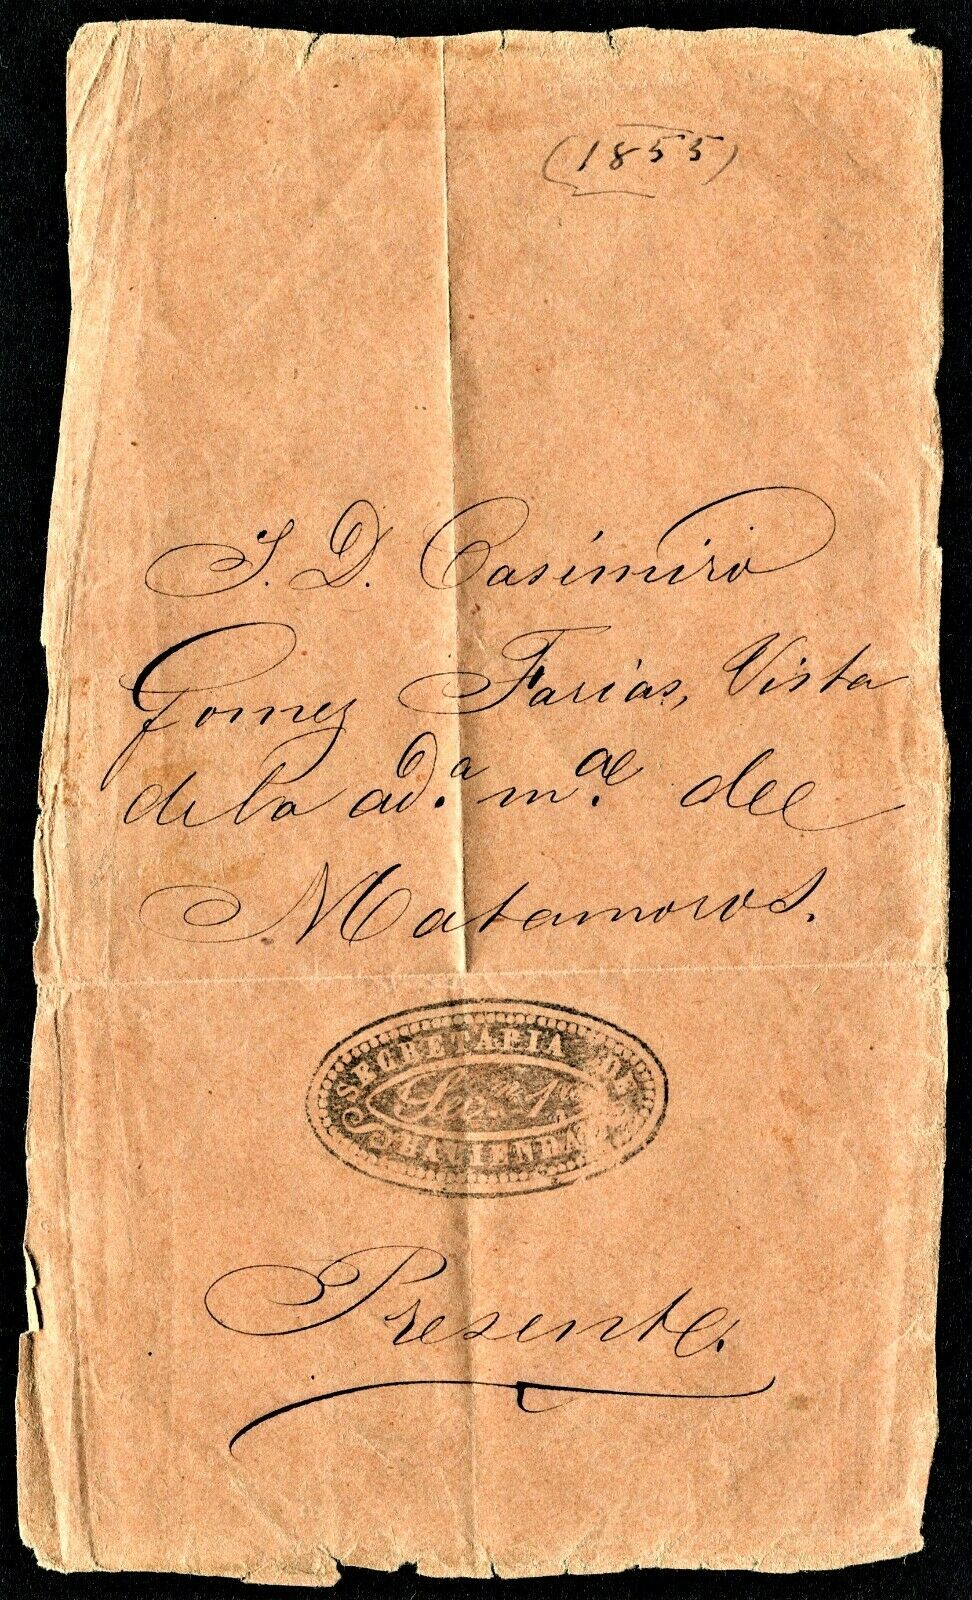 (1855)
S. D. Casimiro
Gomez Farias, Vista
de la ad.ª m.ª de
Matamoros.
SECRETARIA DE
Sec.ⁿ 1.ª
HACIENDA
Presente.